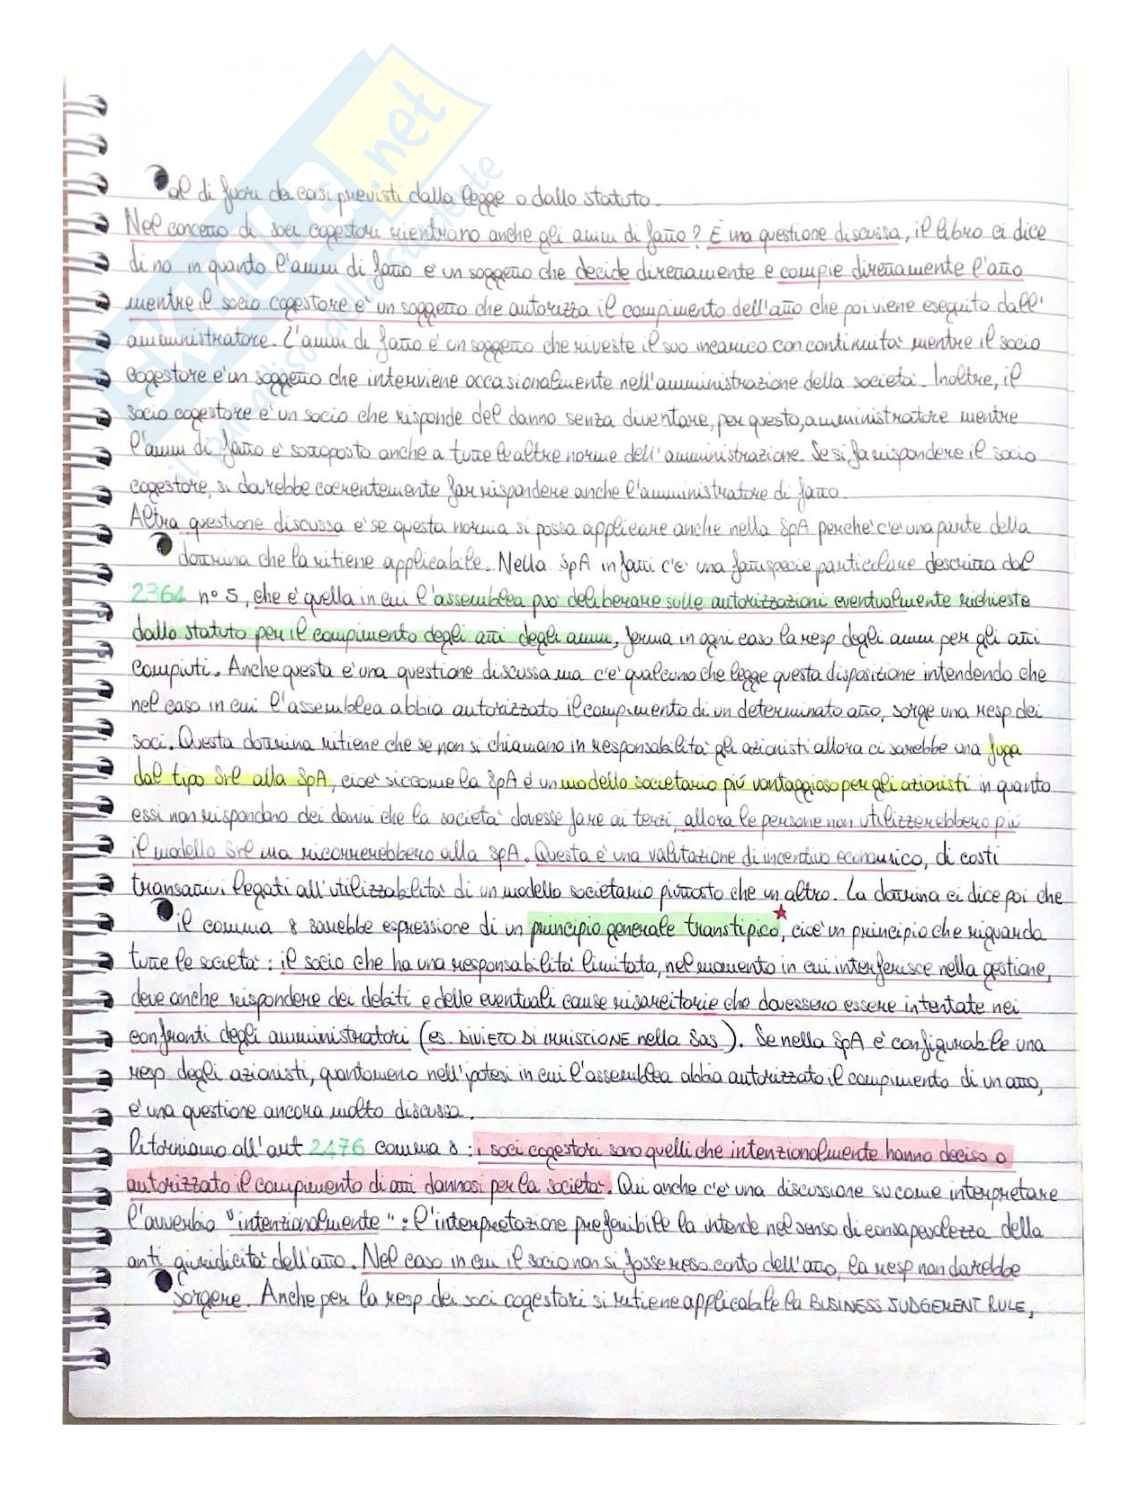 al di fuori dei casi previsti dalla legge o dallo statuto.
Nel concetto di soci cogestori rientrano anche gli amm di fatto? È una questione discussa, il libro ci dice
di no in quanto l'amm di fatto è un soggetto che decide direttamente e compie direttamente l'atto
mentre il socio cogestore è un soggetto che autorizza il compimento dell'atto che poi viene eseguito dall'
amministratore. L'amm di fatto è un soggetto che riveste il suo incarico con continuità mentre il socio
cogestore è un soggetto che interviene occasionalmente nell'amministrazione della società. Inoltre, il
socio cogestore è un socio che risponde del danno senza diventare, per questo, amministratore mentre
l'amm di fatto è sottoposto anche a tutte le altre norme dell'amministrazione. Se si fa rispondere il socio
cogestore, si dovrebbe coerentemente far rispondere anche l'amministratore di fatto.
Altra questione discussa è se questa norma si possa applicare anche nella SpA perché c'è una parte della
dottrina che la ritiene applicabile. Nella SpA infatti c'è una fattispecie particolare descritta dal
2364 n° 5, che è quella in cui l'assemblea può deliberare sulle autorizzazioni eventualmente richieste
dallo statuto per il compimento degli atti degli amm, ferma in ogni caso la resp degli amm per gli atti
compiuti. Anche questa è una questione discussa ma c'è qualcuno che legge questa disposizione intendendo che
nel caso in cui l'assemblea abbia autorizzato il compimento di un determinato atto, sorge una resp dei
soci. Questa dottrina ritiene che se non si chiamano in responsabilità gli azionisti allora ci sarebbe una fuga
dal tipo Srl alla SpA, cioè siccome la SpA è un modello societario più vantaggioso per gli azionisti in quanto
essi non rispondono dei danni che la società dovesse fare ai terzi, allora le persone non utilizzerebbero più
il modello Srl ma ricorrerebbero alla SpA. Questa è una valutazione di incentivo economico, di costi
transattivi legati all'utilizzabilità di un modello societario piuttosto che un altro. La dottrina ci dice poi che
il comma 8 sarebbe espressione di un principio generale transtipico, cioè un principio che riguarda
tutte le società: il socio che ha una responsabilità limitata, nel momento in cui interferisce nella gestione,
deve anche rispondere dei debiti e delle eventuali cause risarcitorie che dovessero essere intentate nei
confronti degli amministratori (es. DIVIETO DI IMMISTIONE nella Sas). Se nella SpA è configurabile una
resp degli azionisti, quantomeno nell'ipotesi in cui l'assemblea abbia autorizzato il compimento di un atto,
è una questione ancora molto discussa.
Ritorniamo all'art 2476 comma 8: i soci cogestori sono quelli che intenzionalmente hanno deciso o
autorizzato il compimento di atti dannosi per la società. Qui anche c'è una discussione su come interpretare
l'avverbio "intenzionalmente": l'interpretazione preferibile la intende nel senso di consapevolezza della
anti giuridicità dell'atto. Nel caso in cui il socio non si fosse reso conto dell'atto, la resp non dovrebbe
sorgere. Anche per la resp dei soci cogestori si ritiene applicabile la BUSINESS JUDGEMENT RULE,